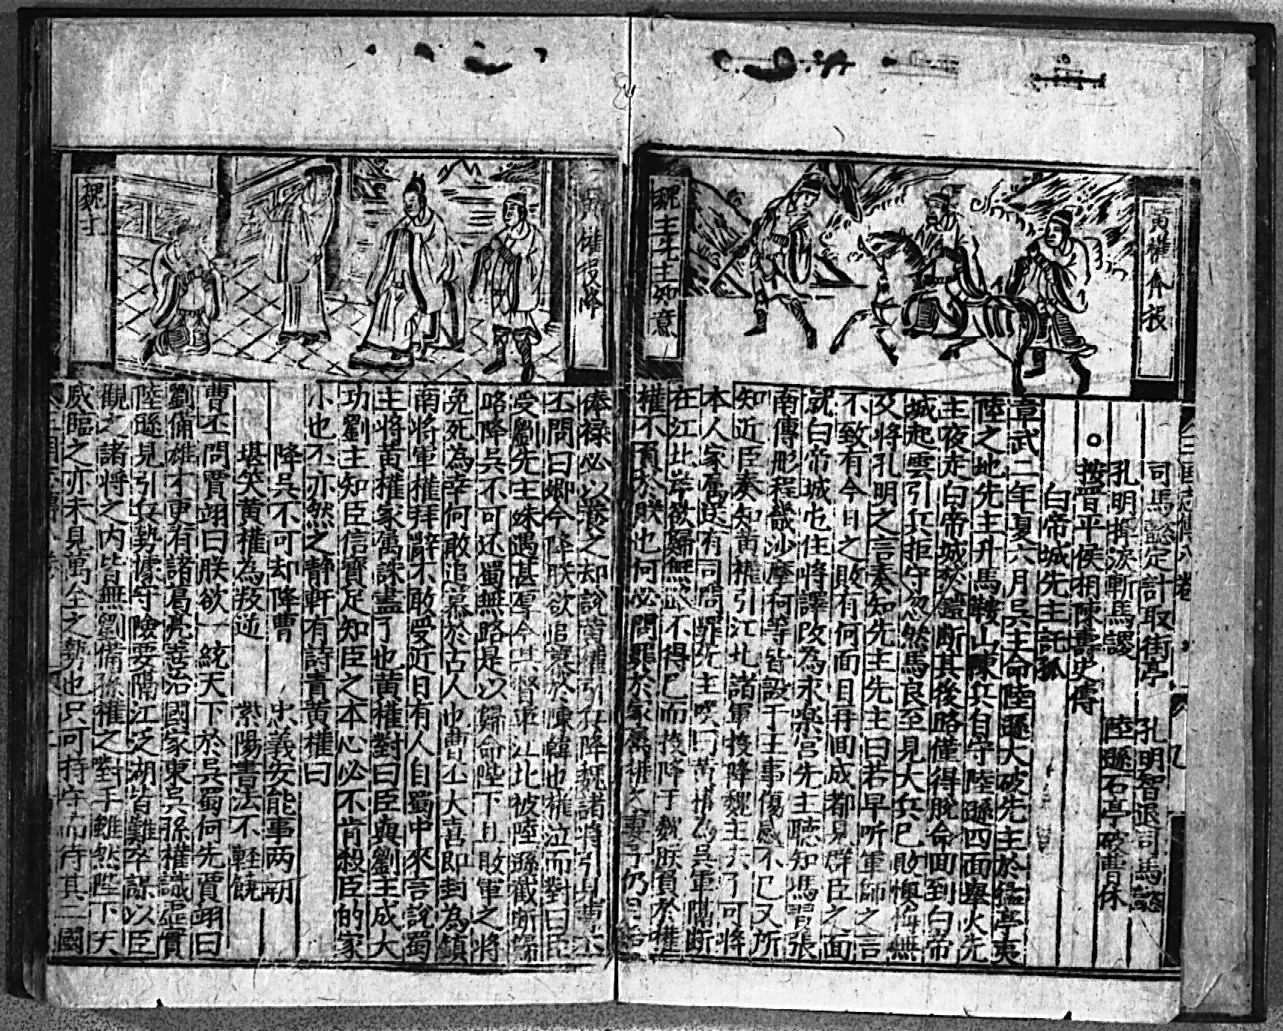 黃權
魏主
三国志傳
司馬懿定計取街亭　孔明智退司馬懿
孔明揮淚斬馬謖　陸遜石亭破曹休
按晉平侯相陳壽史傳
白帝城先主託孤
章武二年夏六月吳主命陸遜大破先主於猇亭夷
陵之地先主升馬鞍山陳兵自守陸遜四面舉火先
主夜走白帝城於鎧断其後略僅得脫命回到白帝
城起雲引兵拒守忽然馬良至見大兵已敗懊悔無
及將孔明之言奏知先主先主曰若早听軍師之言
不致有今日之敗有何面目再回成都見群臣之面
就白帝城屯住將譯改為永樂宮先主聽知馮習張
南傅彤程畿沙摩何等皆設于王事傷感不已又所
知近臣奏知黃權引江北諸軍投降魏主去了可將
本人家属送有司問罪先主
在江北岸欲歸無路不得已而投降于魏朕負於權
權不負於朕也何必問罪於家属
俸祿必以養之却說黃權引兵降魏諸將引見曹丕
丕問曰卿今降朕欲追慕於陳韓也權泣而對曰臣
受劉先主殊遇甚厚今其督率江北被陸遜截断歸
路降吳不可还蜀無路是以歸命陛下且敗軍之將
免死為幸何敢追慕於古人也曹丕大喜即封為鎮
南將軍權拜辭不敢受近日有人自蜀中來言說蜀
主將黃權家属誅盡了也黃權對曰臣與劉主成大
功劉主知臣信實足知臣之本心必不肯殺臣的家
小也丕亦然之静軒有詩責黃權曰
降吳不可却降曹　忠義安能事两朝
堪笑黃權為叛逆　紫陽書法不輕饒
曹丕問賈翊曰朕欲一統天下於吳蜀何先賈翊曰
劉備雄才更有諸葛亮善治國家東吳孫權識虛實
陸遜見引兵勢據守險要隔江泛湖皆難卒謀以臣
觀之諸將之內皆無劉備孫權之對手雖然陛下天
威臨之亦未見萬全之勢也只可持守而待其二國